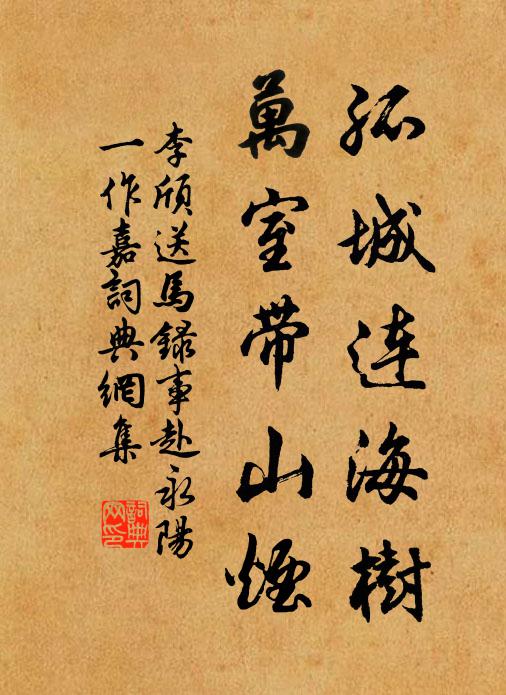 孤城連海樹
萬室帶山煙
李頎送馬録事赴永陽
一作嘉詞典網集
詞典
网印